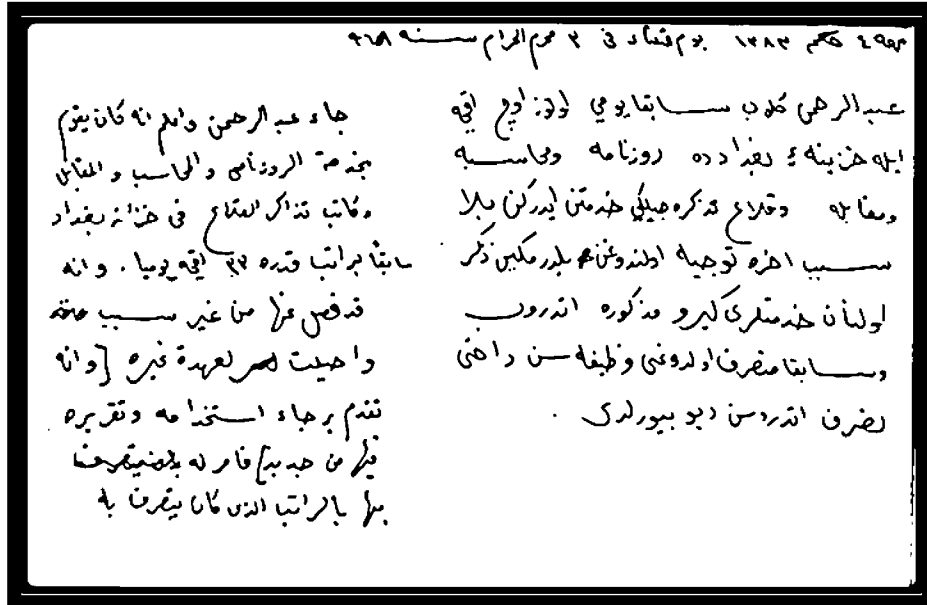 حكم ١٣٨٣ يوم ثلثاء فى ٣ محرم الحرام سنه ٩٦٨
عبد الرحمن كلوب سابقا يومي اوتوز اوچ اقچه
ايله خزينهٔ بغداد ده روزنامه ومحاسبه
ومقابله وقلاع تذكره جيلكي خدمتن ايدركن بلا
سبب اخره توجيه اولندوغن بلدرمكين ذكر
اولنان خدمتلرى كيرو مذكوره اتدروب
وسابقا متصرف اولدوغى وظيفه سن داخى
تصرف اتدروسن ديو بيورلدى .
جاء عبد الرحمن واعلم انه كان يقوم
بخدمة الروزنامه والمحاسب والمقابل
وكاتب تذاكر القلاع فى خزانة بغداد
سابقاً براتب قدره ٣٣ اقچه يوميا . وانه
قد فصل عنها من غير سبب
واحيلت لعهدة غيره [وانه
تقدم برجاء استخدامه وتقريره
فيها من جديد] فامر له
بها بالراتب الذى كان يتصرف به